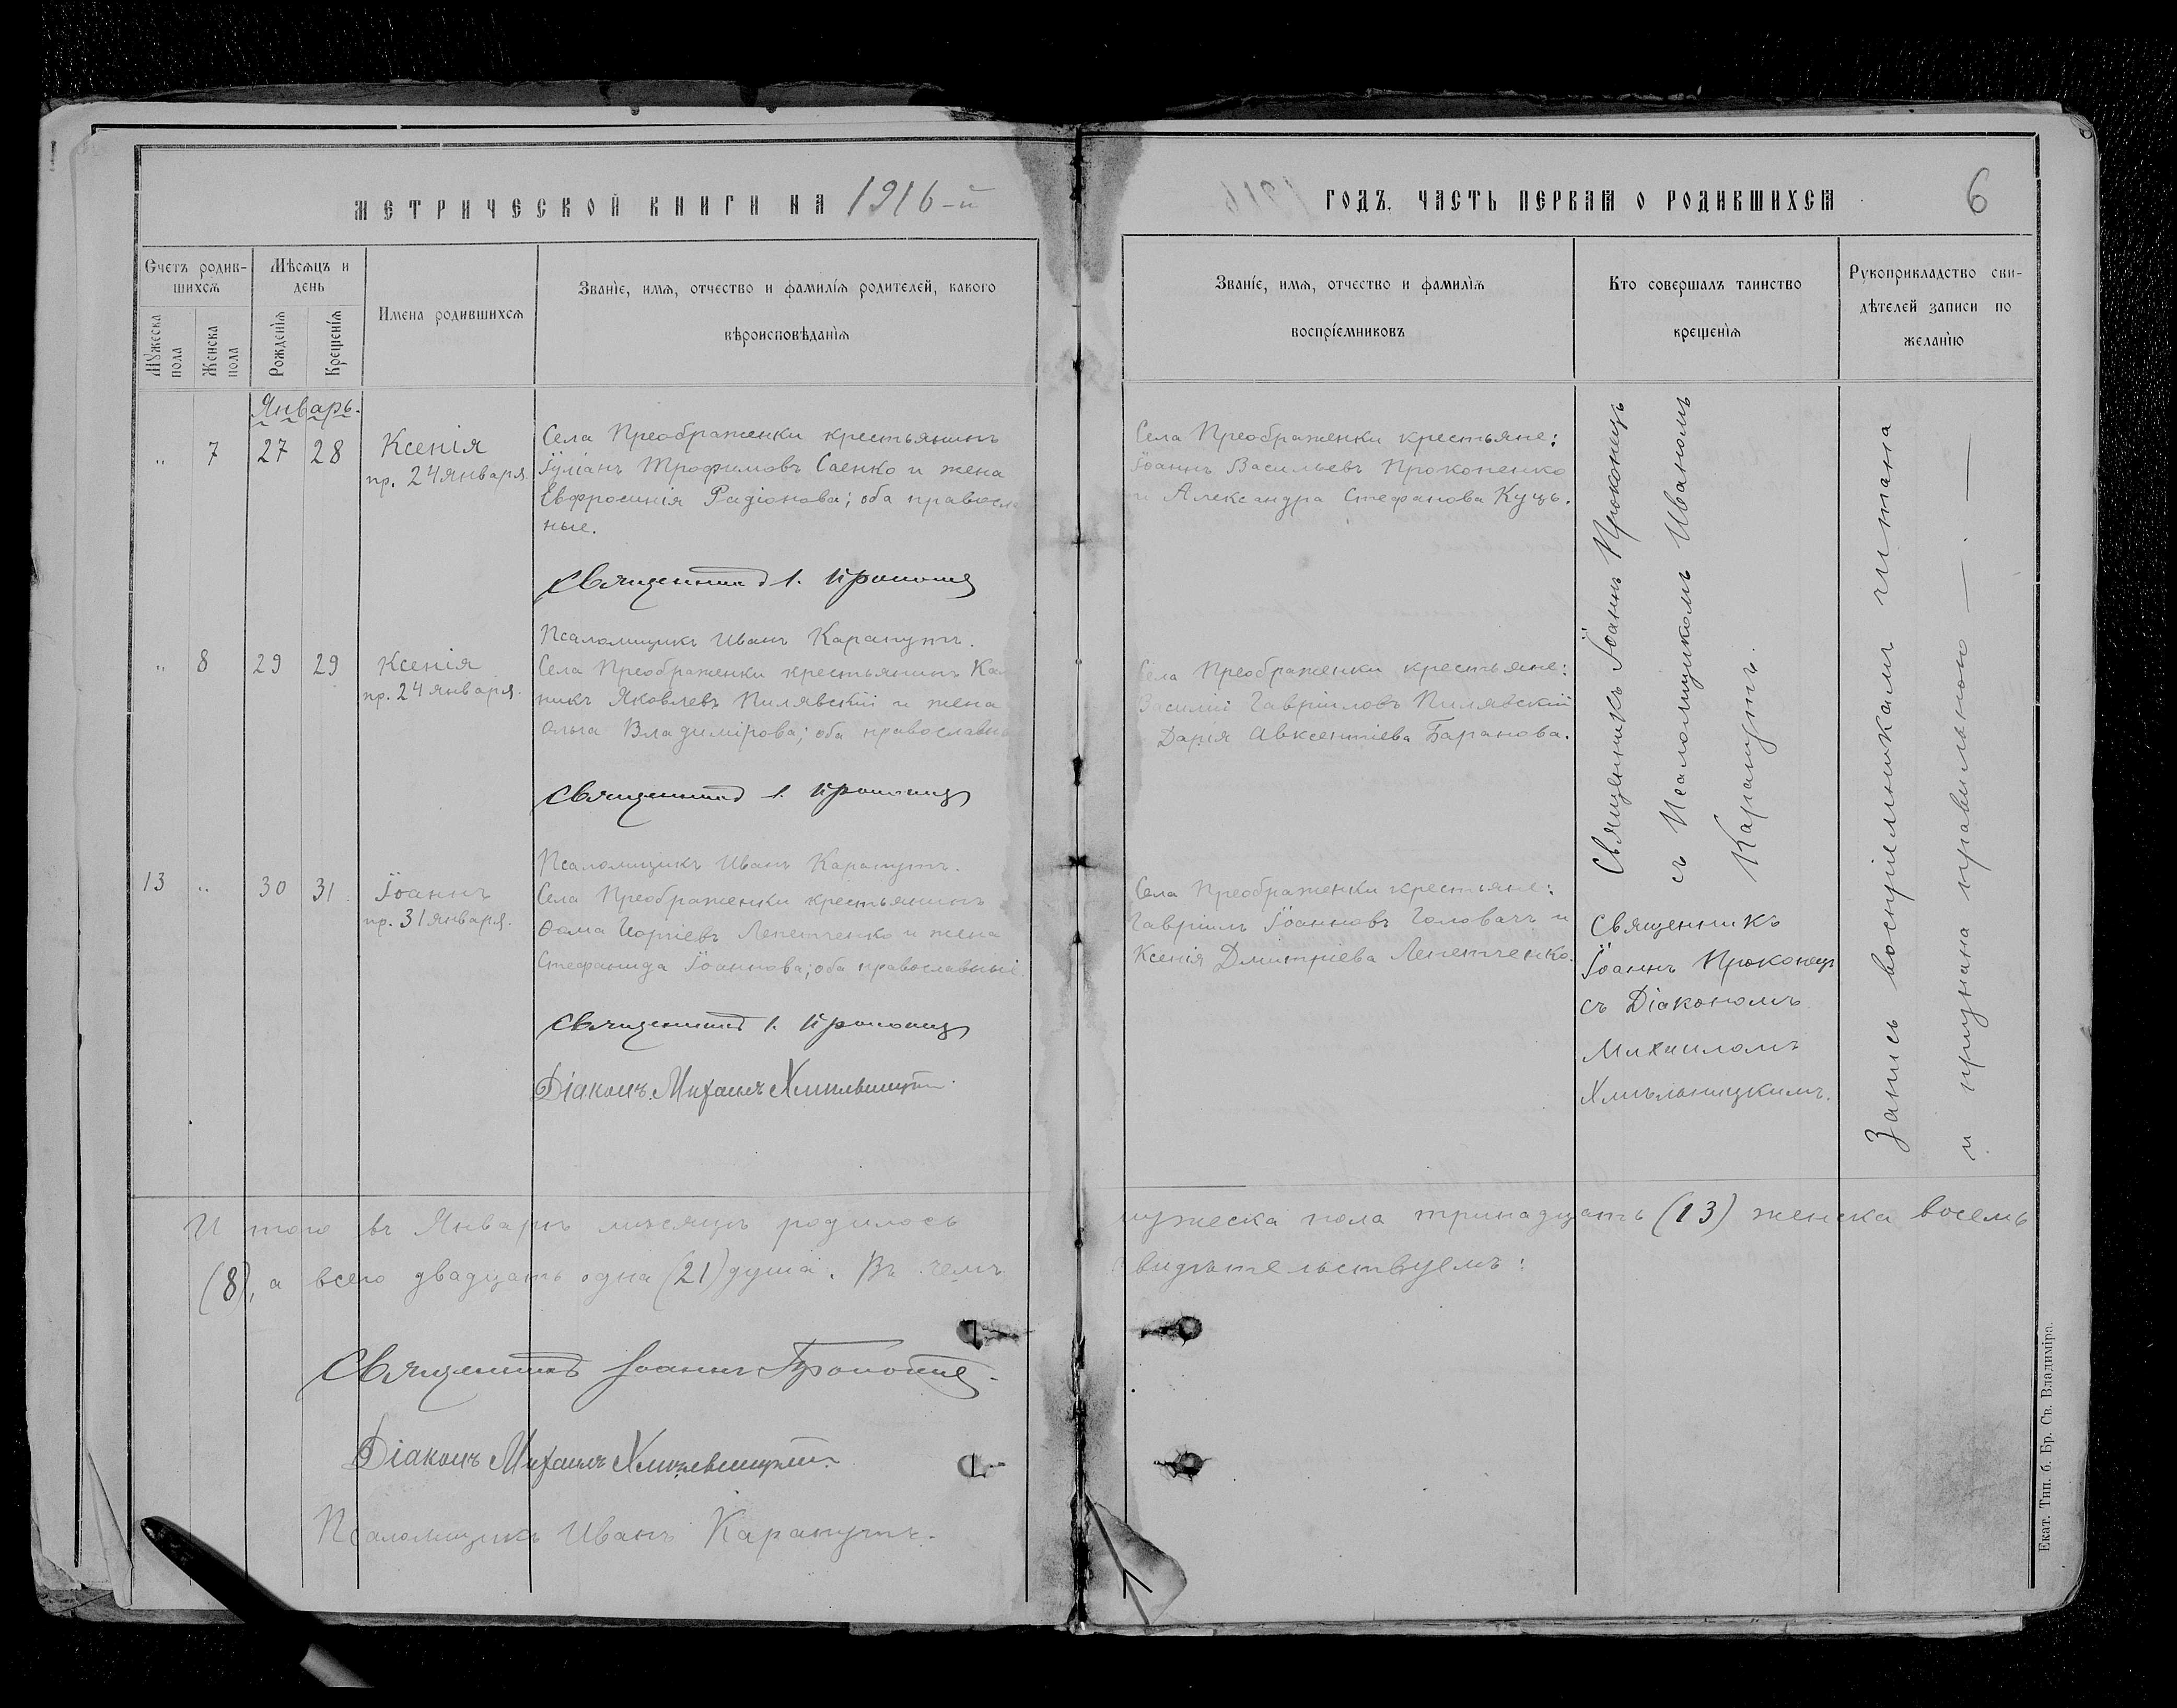 МЕТРИЧЕСКОЙ КНИГИ НА 1916-й
ГОДЪ. ЧАСТЬ ПЕРВАЯ О РОДИВШИХСЯ
6
Счетъ родив-
шихся
Мѣсяцъ и
день
Мужеска
пола
Женска
пола
Рожденія
Крещенія
Имена родившихся
Званіе, имя, отчество и фамилія родителей, какого
вѣроисповѣданія
Званіе, имя, отчество и фамилія
воспріемниковъ
Кто совершалъ таинство
крещенія
Рукоприкладство сви-
дѣтелей записи по
желанію
Январь.
„ 7 27 28 Ксенія
пр. 24 января.
Села Преображенки крестьянинъ
Іуліанъ Трофимовъ Саенко и жена
Евфросинія Радіонова; оба правосла
ные.
Священникъ І. Прокопец
Псаломщикъ Иванъ Карапутъ.
Села Преображенки крестьяне:
Іоаннъ Васильевъ Прокопенко
и Александра Стефанова Куць.
„ 8 29 29 Ксенія
пр. 24 января.
Села Преображенки крестьянинъ
никъ Яковлевъ Пилявскій и жена
Ольга Владимірова; оба православн
Священникъ І. Прокопец
Псаломщикъ Иванъ Карапутъ.
Села Преображенки крестьяне:
Василій Гавріиловъ Пилявскій
Дарія Авксентіева Баранова.
13 „ 30 31 Іоаннъ
пр. 31 января.
Села Преображенки крестьянинъ
Ѳома Георгіевъ Лепетченко и жена
Стефанида Іоаннова; оба православные
Священникъ І. Прокопец
Діаконъ Михаилъ Хмѣльницкій.
Села Преображенки крестьяне:
Гавріилъ Іоанновъ Головачъ и
Ксенія Дмитріева Лепетченко.
Священникъ Іоаннъ Прокопецъ
съ Псаломщикомъ Иваномъ
Карапутъ.
Священникъ
Іоаннъ Прокопецъ
съ Діакономъ
Михаиломъ
Хмѣльницкимъ.
Запись воспріемникамъ читана
и признана правильною — . —
И того въ Январѣ мѣсяцѣ родилось мужеска пола тринадцать (13) женска восемь
(8), а всего двадцать одна (21) душа. Въ чемъ видѣтельствуемъ:
Священникъ Іоаннъ Прокопец.
Діаконъ Михаилъ Хмѣльницкій.
Псаломщикъ Иванъ Карапутъ.
Екат. Тип. б. Бр. Св. Владиміра.